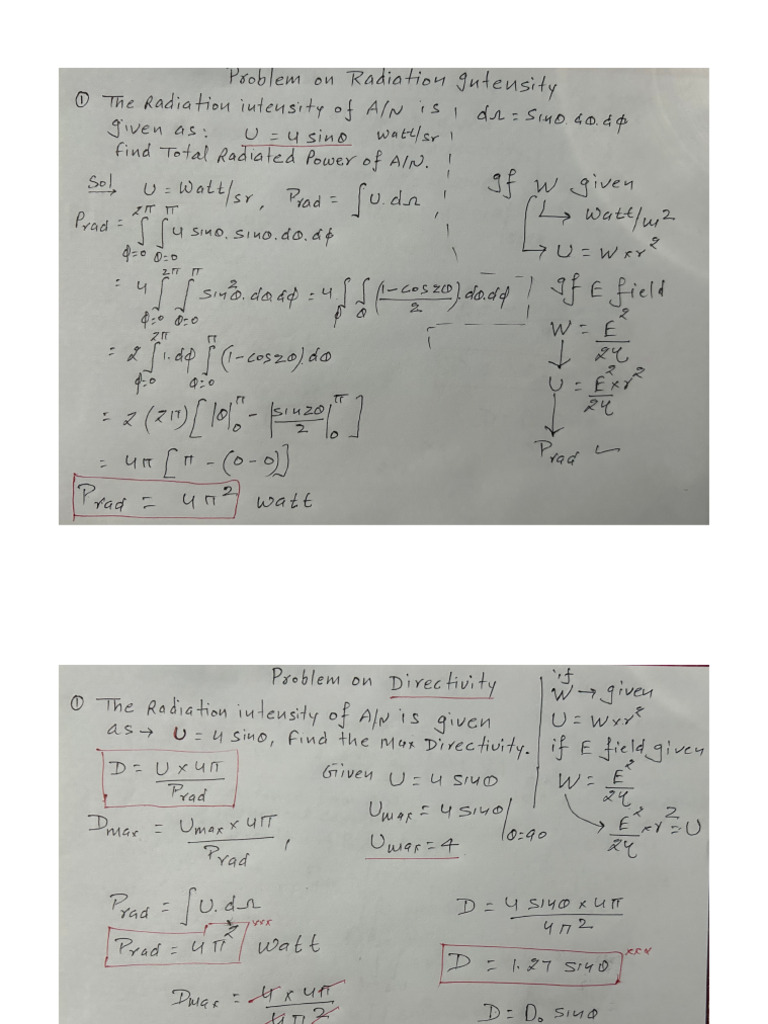 Problem on Radiation Intensity
① The Radiation intensity of A/N is
given as: U = 4 sinθ watt/sr
find Total Radiated Power of A/N.
dΩ = sinθ.dθ.dϕ
Sol U = Watt/sr, Prad = ∫U.dΩ
Prad = ∫_{ϕ=0}^{2π} ∫_{θ=0}^{π} 4 sinθ. sinθ.dθ.dϕ
= 4 ∫_{ϕ=0}^{2π} ∫_{θ=0}^{π} sin²θ.dθ.dϕ = 4 ∫_ϕ ∫_θ (1-cos2θ)/2 .dθ.dϕ
= 2 ∫_{ϕ=0}^{2π} 1.dϕ ∫_{θ=0}^{π} (1-cos2θ).dθ
= 2 (2π) [ |θ|_0^π - |sin2θ/2|_0^π ]
= 4π [π - (0-0)]
Prad = 4π² watt
If W given
→ Watt/m²
→ U = W×r²
If E field
W = E²/2η
U = E²×r²/2η
Prad ✓
Problem on Directivity
① The Radiation intensity of A/N is given
as → U = 4 sinθ, Find the Max Directivity.
if
W → given
U = W×r²
if E field given
W = E²/2η
→ E²/2η ×r² = U
D = U×4π/Prad
Given U = 4 sinθ
Dmax = Umax×4π/Prad ,
Umax = 4 sinθ|θ=90
Umax = 4
Prad = ∫U.dΩ
Prad = 4π² watt
D = 4 sinθ×4π/4π²
D = 1.27 sinθ
Dmax = 4×4π/4π²
D = D₀ sinθ